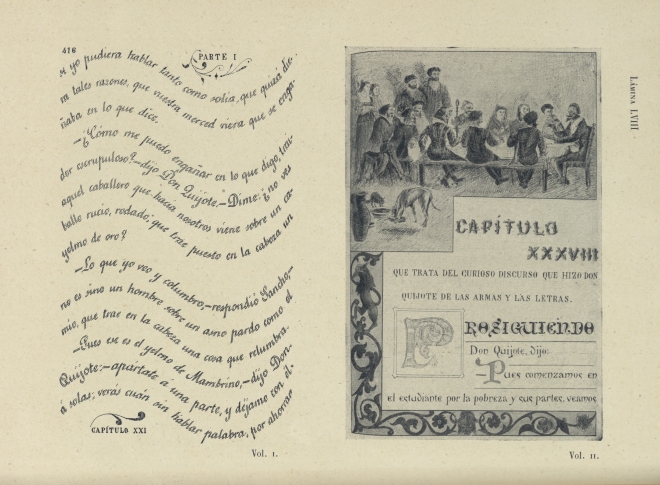 416
PARTE I
si yo pudiera hablar tanto como solía, que quizá die-
ra tales razones, que vuestra merced viera que se enga-
ñaba en lo que dice.
—¿Cómo me puedo engañar en lo que digo, trai-
dor escrupuloso?—dijo Don Quijote.—Dime: ¿no ves
aquel caballero que hacia nosotros viene sobre un ca-
ballo rucio, rodado, que trae puesto en la cabeza un
yelmo de oro?
—Lo que yo veo y columbro,—respondió Sancho,—
no es sino un hombre sobre un asno pardo como el
mío, que trae en la cabeza una cosa que relumbra.
—Pues ese es el yelmo de Mambrino,—dijo Don
Quijote:—apártate á una parte, y déjame con él
á solas; verás cuán sin hablar palabra, por ahorrar
CAPÍTULO XXI
Vol. I.
CAPÍTULO
XXXVIII
QUE TRATA DEL CURIOSO DISCURSO QUE HIZO DON
QUIJOTE DE LAS ARMAS Y LAS LETRAS.
PROSIGUIENDO
Don Quijote, dijo:
Pues comenzamos en
el estudiante por la pobreza y sus partes, veamos
Vol. II.
LÁMINA LVIII